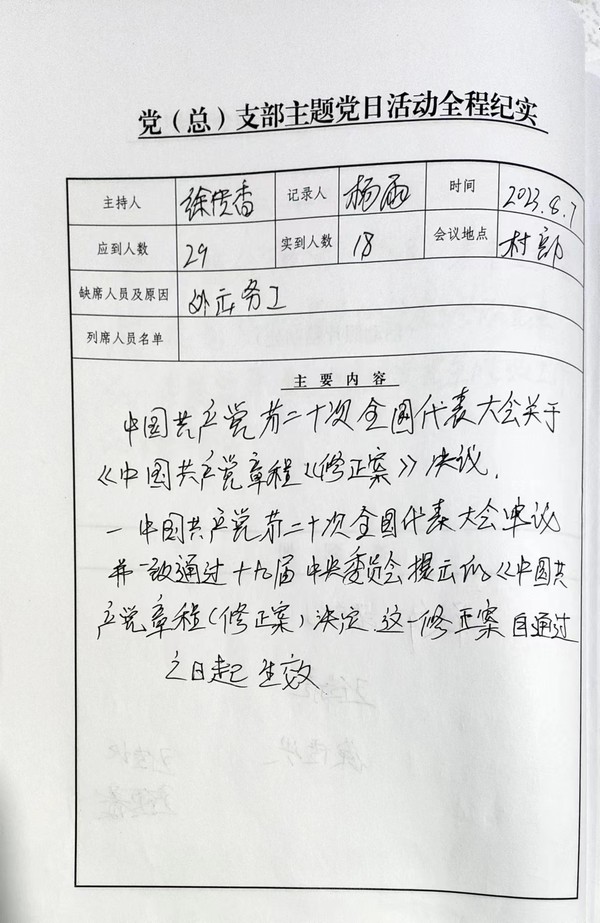 党（总）支部主题党日活动全程纪实
主持人 徐贵香 记录人 杨雨 时间 2023.8.7
应到人数 29 实到人数 18 会议地点 村部
缺席人员及原因 外出务工
列席人员名单
主要内容
中国共产党第二十次全国代表大会关于
《中国共产党章程《修正案》》决议.
一中国共产党第二十次全国代表大会审议
并一致通过十九届中央委员会提出的《中国共
产党章程(修正案)决定.这一修正案自通过
之日起生效